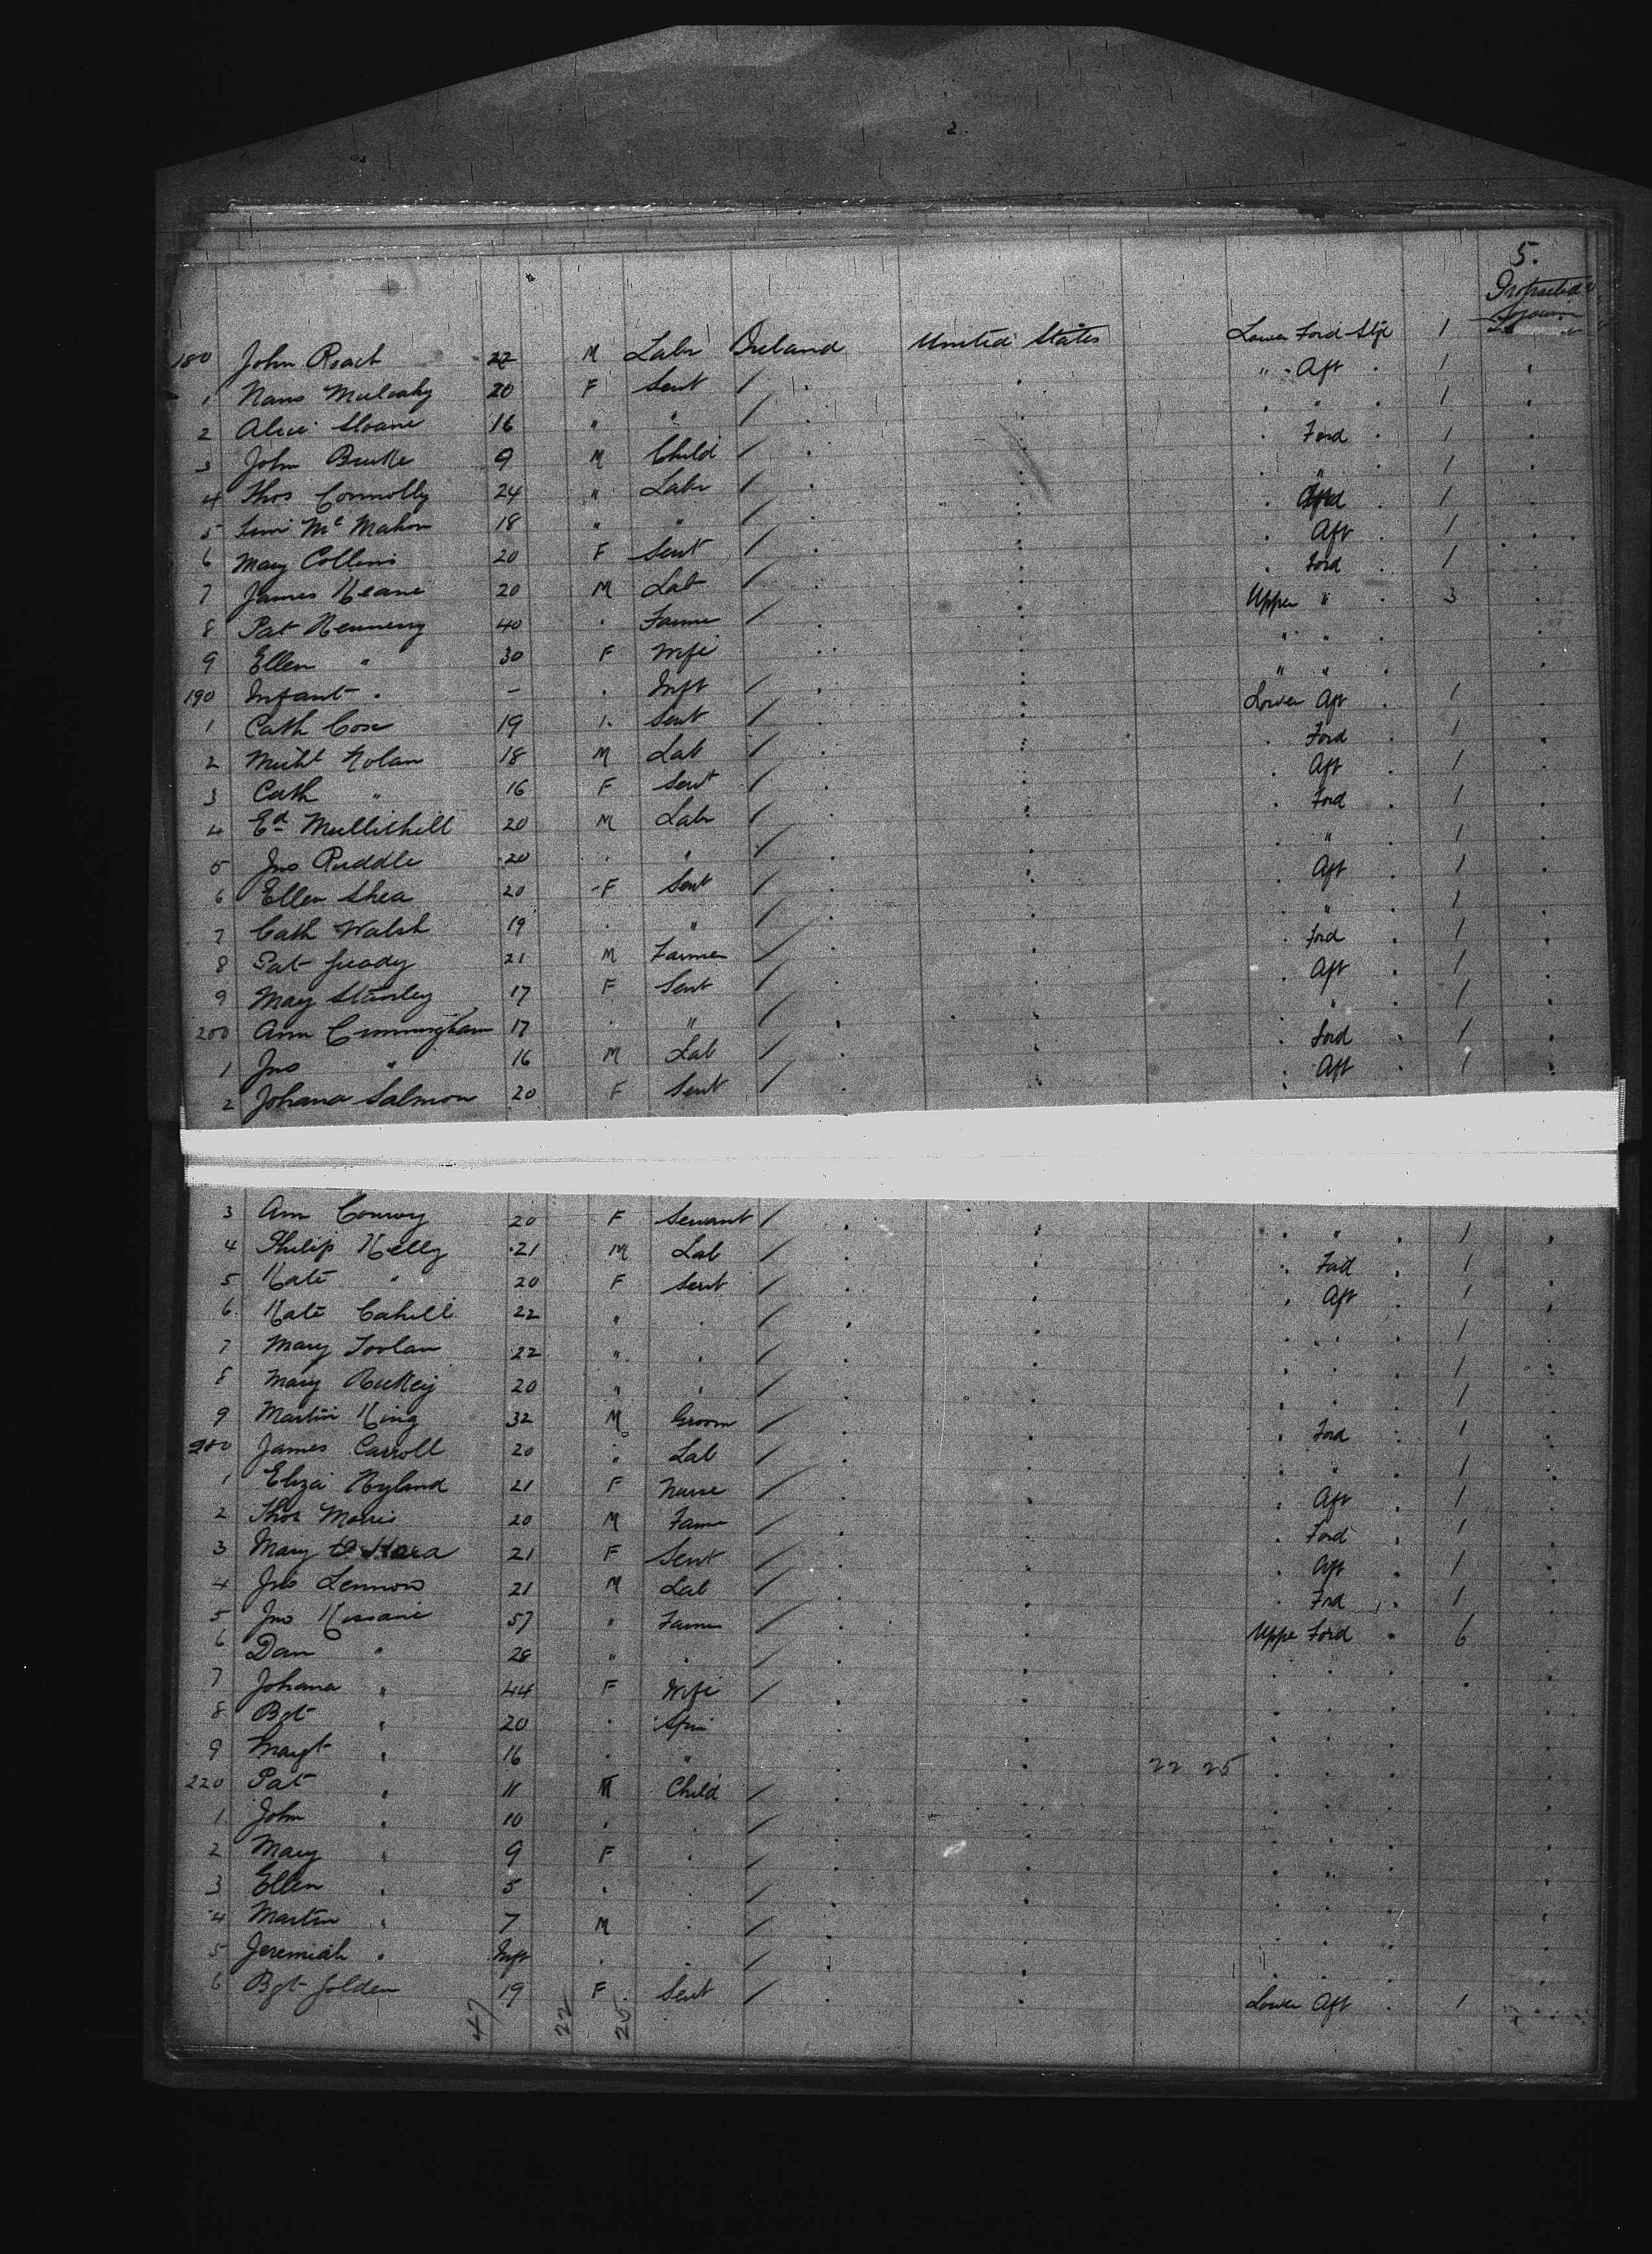 5.
Protracted
Sojourn
180 John Roach 22 M Labr Ireland United States Lower Ford Stge 1
1 Nano Mulcahy 20 F Servt / " Aft 1
2 Alice Sloane 16 " " / " 1
3 John Burke 9 M Child / Ford 1
4 Thos Connolly 24 " Labr / " 1
5 McMahon 18 " " / 1
6 Mary Collins 20 F Servt / Aft 1
7 James Keane 20 M Lab / Ford 1
8 Pat Kennery 40 " Farmer / Upper " 3
9 Ellen " 30 F Wife " "
190 Infant " - " Inft / " "
1 Cath Cox 19 " Servt / Lower Aft 1
2 Michl Nolan 18 M Lab / Ford 1
3 Cath " 16 F Servt / Aft 1
4 Ed Mullihill 20 M Labr / Ford 1
5 Jno Ruddle 20 " " / " 1
6 Ellen Shea 20 F Servt / Aft 1
7 Cath Walsh 19 " " / " 1
8 Pat Grady 21 M Farmer / Ford 1
9 May Stanley 17 F Servt / Aft 1
200 Ann Cunningham 17 " " / " 1
1 Jno " 16 M Lab / Ford 1
2 Johana Salmon 20 F Servt / Aft 1
3 Ann Conroy 20 F Servant / " 1
4 Philip Kelly 21 M Lab / Ford 1
5 Kate " 20 F Servt / Aft 1
6 Kate Cahill 22 " " / " 1
7 Mary Toolan 22 " " / " 1
8 Mary Hickey 20 " " / " 1
9 Martin King 32 M Groom / Ford 1
210 James Carroll 20 " Lab / " 1
1 Eliza Hyland 21 F Nurse / Aft 1
2 Thos Morris 20 M Farmr / Ford 1
3 Mary O'Hara 21 F Servt / Aft 1
4 Jno Lennon 21 M Lab / Ford 1
5 Jno Kissane 57 " Farmer / Upper Ford 6
6 Dan " 28 " " /
7 Johana " 44 F Wife /
8 Bgt " 20 " Spin
9 Margt " 16 " " 22 25
220 Pat " 11 M Child /
1 John " 10 " " /
2 Mary " 9 F " /
3 Ellen " 5 " " /
4 Martin " 7 M " /
5 Jeremiah " Inft " " /
6 Bgt Golden 19 F Servt / Lower Aft 1
47 22 25